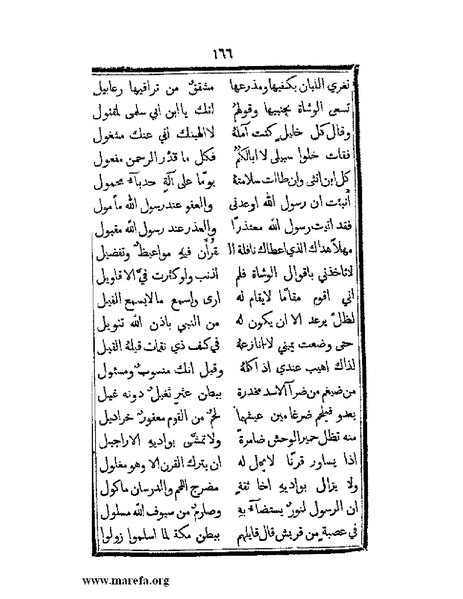 ١٦٦
تفري اللبان بكفيها ومذرعها مشقق من تراقيها رعابيل
تسعى الوشاة بجنبيها وقولهم انك يا ابن ابي سلمى لمقتول
وقال كل خليل كنت آمله لا الهينك اني عنك مشغول
فقلت خلوا سبيلي لا ابا لكم فكل ما قدر الرحمن مفعول
كل ابن انثى وان طالت سلامته يوما على آلة حدبآء محمول
أنبئت ان رسول الله اوعدني والعفو عند رسول الله مأمول
فقد اتيت رسول الله معتذرا والعذر عند رسول الله مقبول
مهلا هداك الذي اعطاك نافلة ال قرآن فيه مواعيظ وتفضيل
لا تاخذني باقوال الوشاة فلم اذنب ولو كثرت في الاقاويل
اني اقوم مقاما لا يقام له ارى واسمع ما لا يسمع الفيل
لظل يرعد الا ان يكون له من النبي باذن الله تنويل
حتى وضعت يميني لا انازعه في كف ذي نقمات قيله القيل
لذاك اهيب عندي اذ اكلمه وقيل انك منسوب ومسئول
من ضيغم من ضرآ الاسد مخدرة ببطن عثر غيل دونه غيل
يغدو فيلحم ضرغامين عيشهما لحم من القوم معفور خراديل
منه تظل حمير الوحش ضامرة ولا تمشى بواديه الاراجيل
اذا يساور قرنا لا يحل له ان يترك القرن الا وهو مغلول
ولا يزال بواديه اخا ثقة مضرج اللحم والدرسان ماكول
ان الرسول لنور يستضآء به وصارم من سيوف الله مسلول
في عصبة من قريش قال قايلهم ببطن مكة لما اسلموا زولوا
www.marefa.org